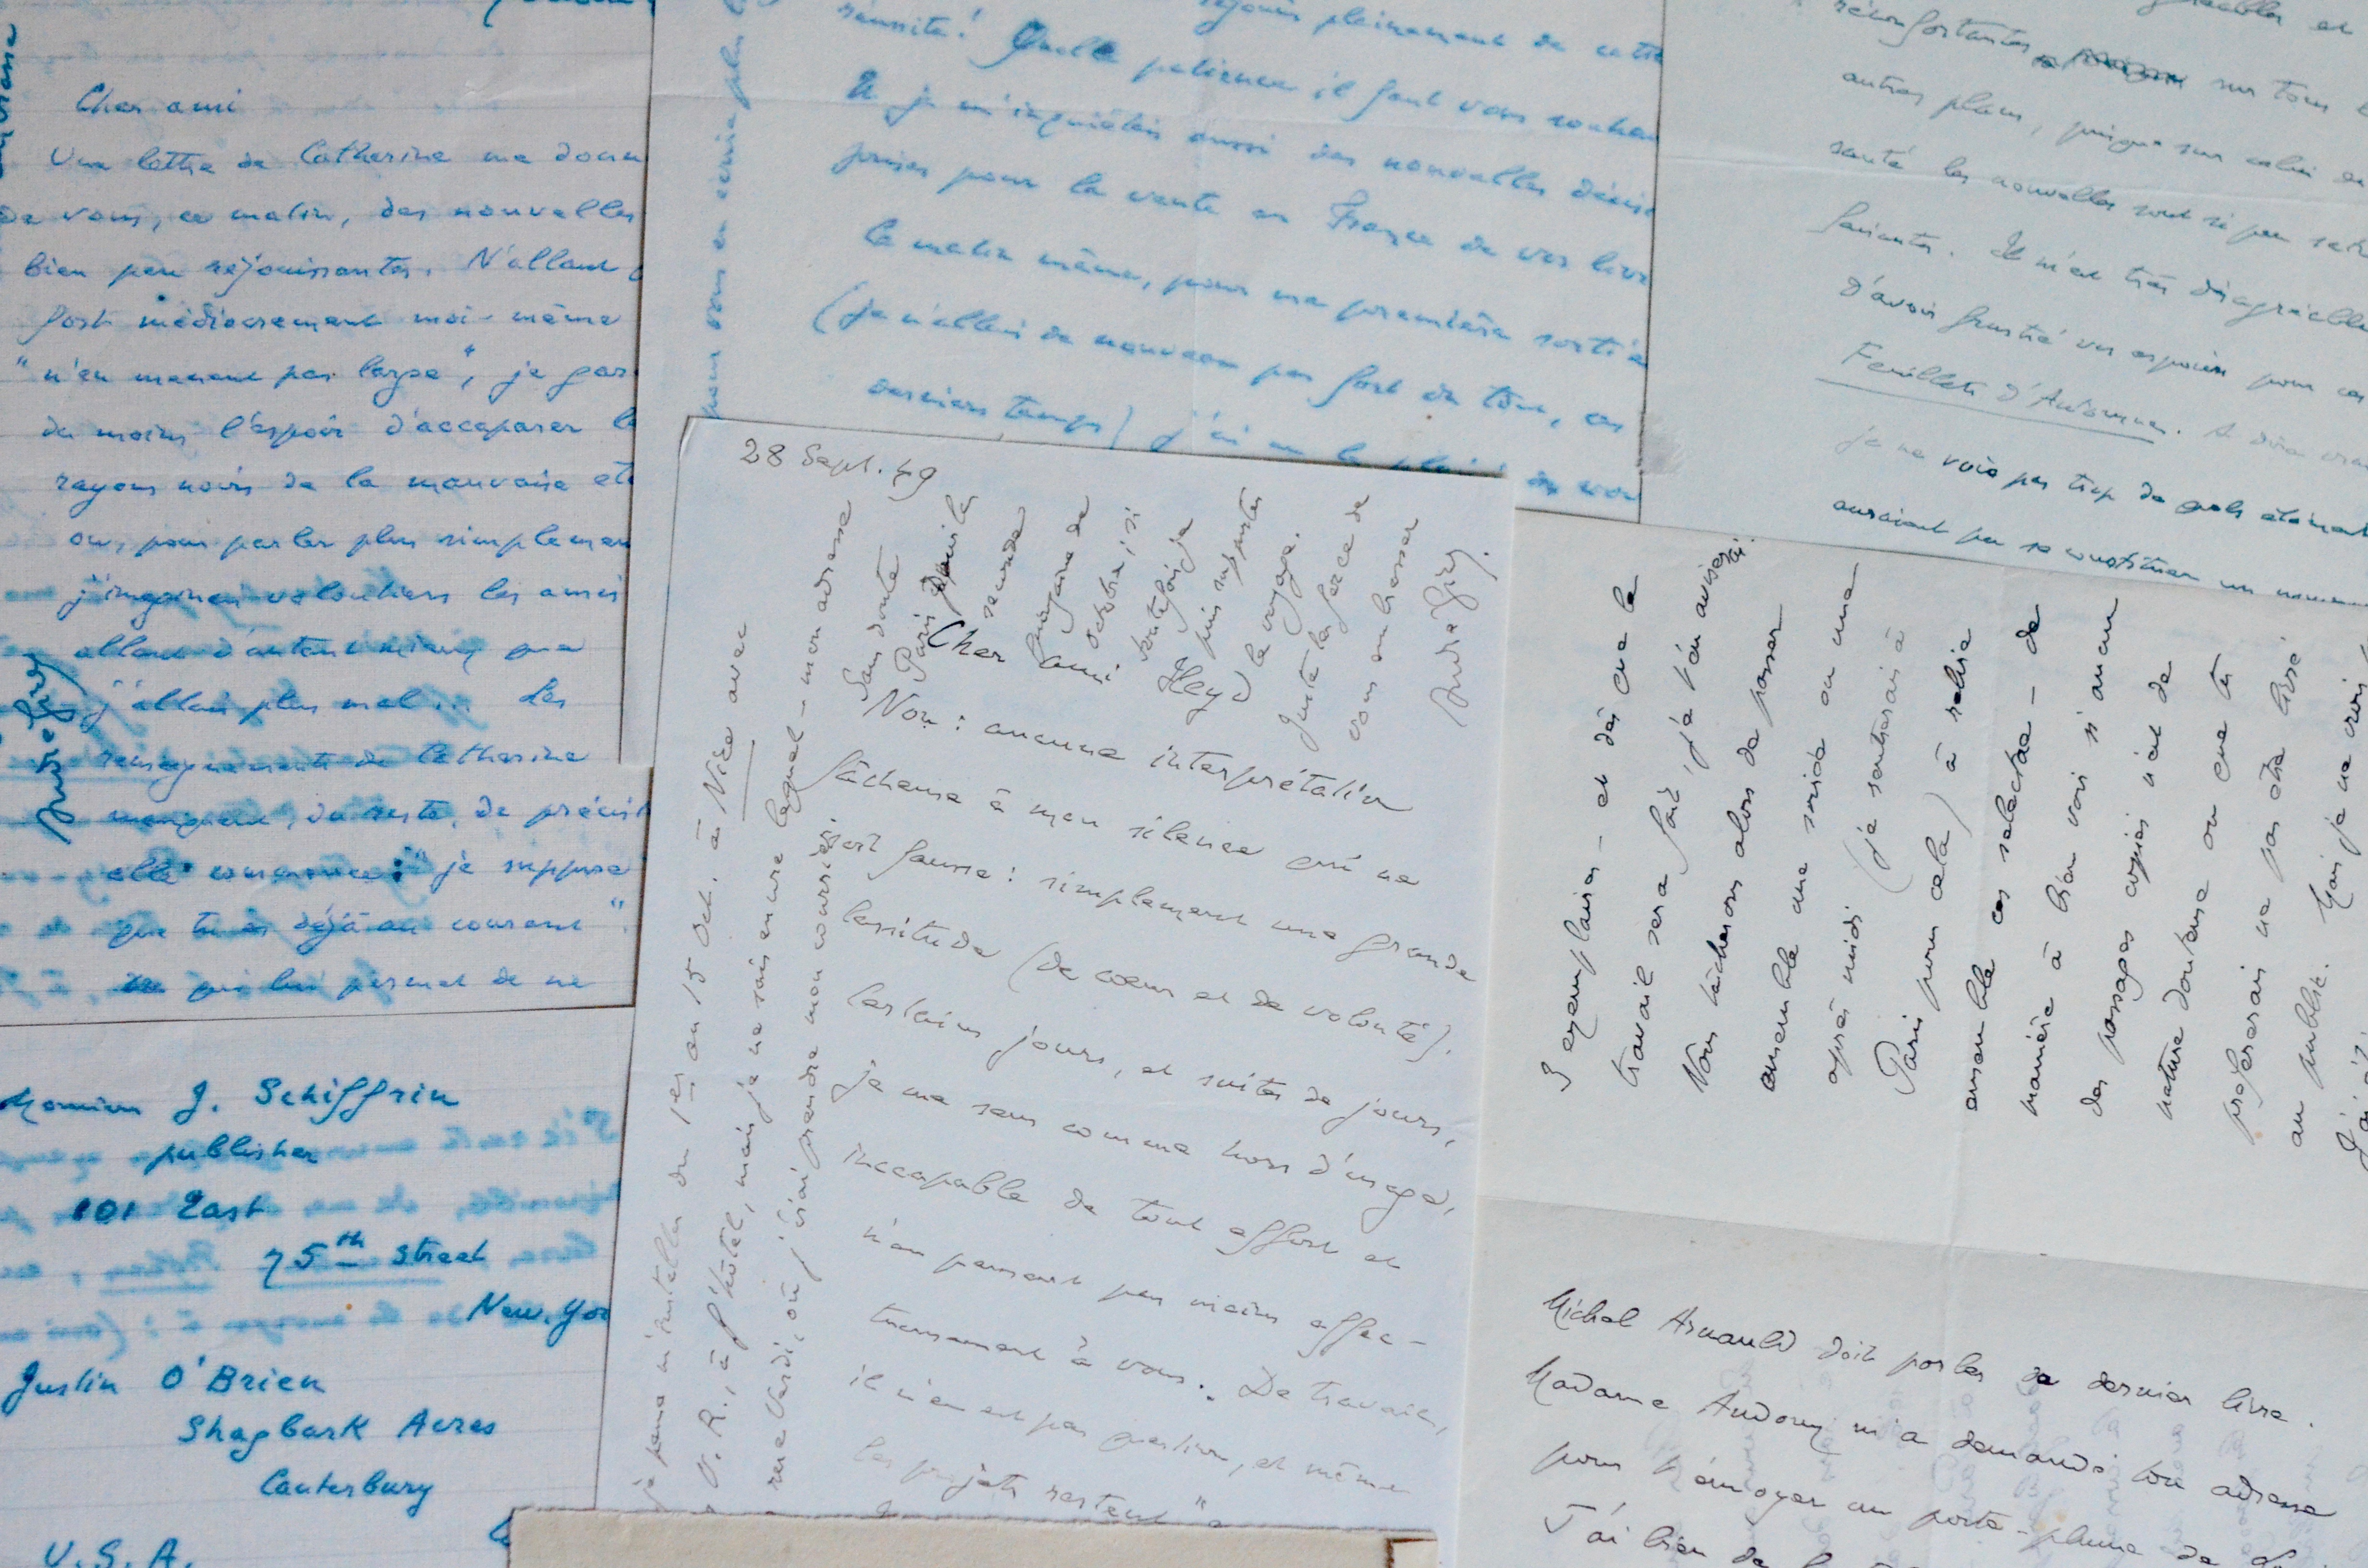 Cher ami
Une lettre de Catherine me donne
de vous, ce matin, des nouvelles
bien peu réjouissantes. N'allant
fort médiocrement moi-même
"n'en menant pas large", je gar
du moins l'espoir d'accaparer le
rayons noirs de la mauvaise eto
ou, pour parler plus simplement
j'imaginais volontiers les amis
allant d'autant mieux que
j'allais plus mal... Les
renseignements de Catherine
manquent, du reste, de précis
elle commence: "je suppose
que tu es déjà au courant"
ce qui lui permet de ne
André Gide
Monsieur J. Schiffrin
publisher
101 East
75th Street
New. Yor
Justin O'Brien
Shagbark Acres
Canterbury
U.S.A.
pour vous en écrire plus
pleinement de cette
réussite! Quelle patience il faut vous souhai
Et je m'inquiétais aussi des nouvelles décisi
prises pour la vente en France de vos livr
Ce matin même, pour ma première sortie
(je n'allais de nouveau pas fort du tout, ces
derniers temps) j'ai eu le
28 Sept. 49
Cher ami Heyd
Non: aucune interprétation
fâcheuse à mon silence qui ne
soit fausse: simplement une grande
lassitude (de cœur et de volonté).
Certains jours, et suites de jours,
je me sens comme hors d'usage,
incapable de tout effort et
n'en pensant pas moins affec-
tueusement à vous. De travail,
il n'en est pas question, et même
les projets restent
je pense m'installer du 1er au 15 Oct. à Nice avec
V. R., à l'hôtel, mais je ne sais encore lequel - mon adresse
rue Verdi, où j'irai prendre mon courrier.
Sans doute
Paris depuis la
seconde
quinzaine de
octobre, si
toutefois je
puis supporter
le voyage.
Juste la force de
vous embrasser
André Gide.
réconfortantes, sur tous
autres plans, puisque sur celui de
santé les nouvelles sont si peu satis
faisantes. Il m'est très désagréable
d'avoir frustré vos espoirs pour ces
Feuillets d'Automne. A dire vrai
je ne vois pas trop de quels éléments
auraient pu se constituer un
3 exemplaires - et dès que le
travail sera fait, je t'en aviserai.
Nous tâcherons alors de passer
ensemble une soirée ou une
après midi (je rentrerai à
Paris pour cela) à relire
ensemble ces selectae - de
manière à bien voir si aucun
des passages copiés n'est de
nature douteuse ou que tu
préférerais ne pas être livré
au public. Mais je ne crois
Michel Arnauld doit parler de dernier livre.
Madame Audoux m'a demandé ton adresse
pour t'envoyer un porte-plume de
J'ai bien de